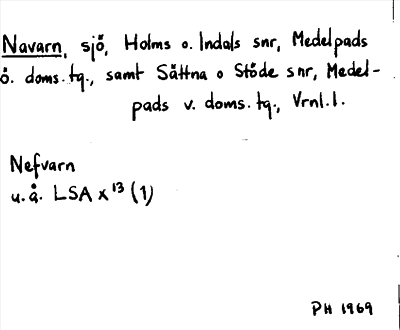 Navarn, sjö, Holms o. Indals snr, Medelpads
ö. doms. tg., samt Sättna o Stöde snr, Medel-
pads v. doms. tg., Vrnl. l.
Nefvarn
u. å. LSA x¹³ (1)
PH 1969